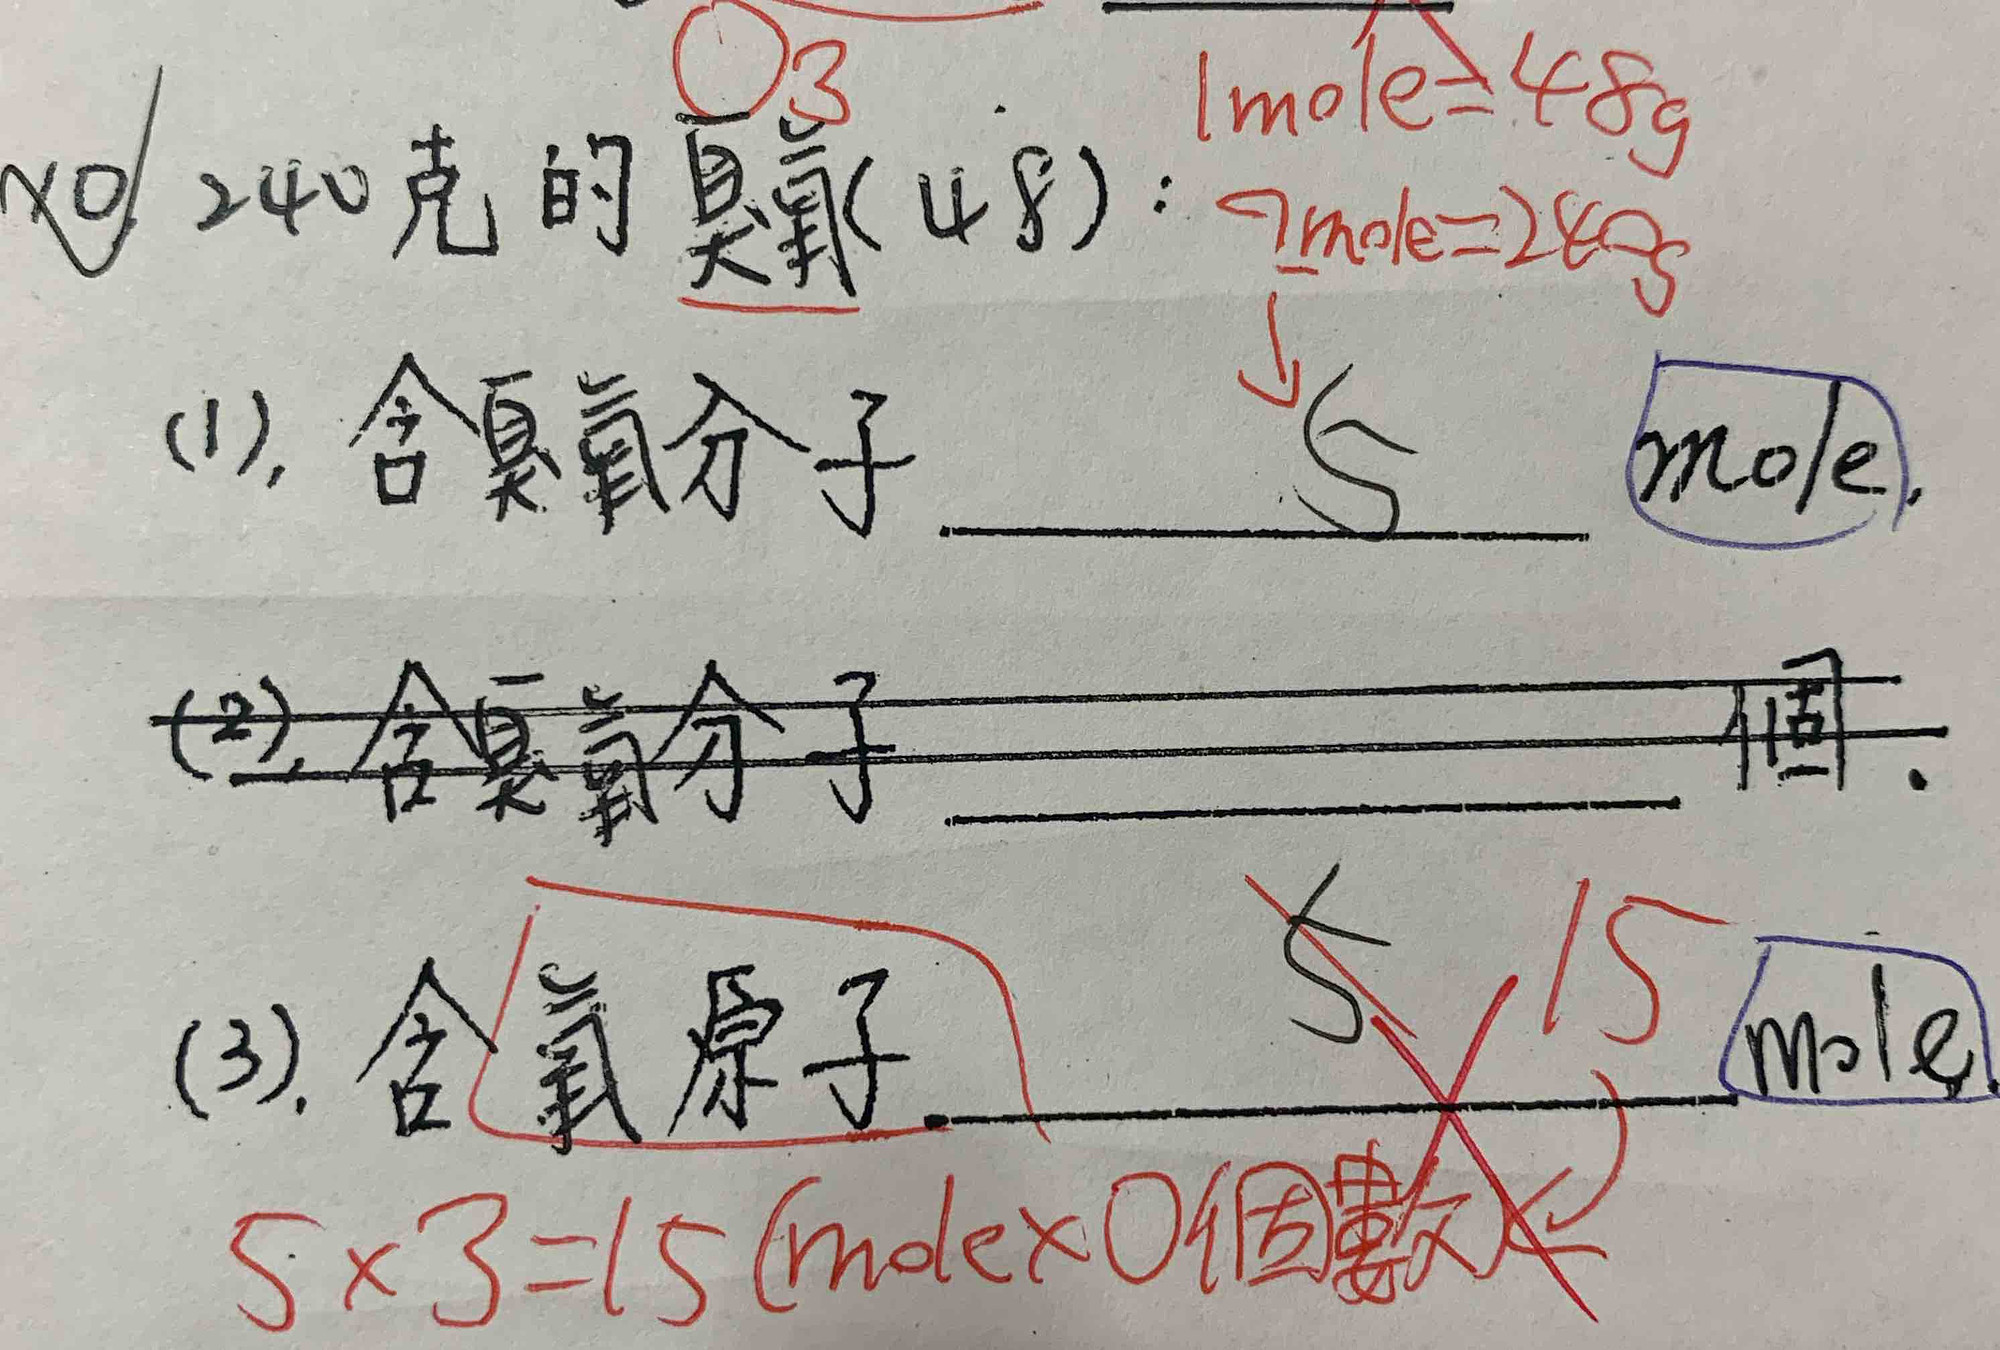 O3
1mole=48g
240克的臭氧(48):
?mole=240g
(1).含臭氧分子 5 mole.
(2).含臭氧分子 個.
(3).含氧原子 5 15 mole.
5×3=15(mole×O個數)